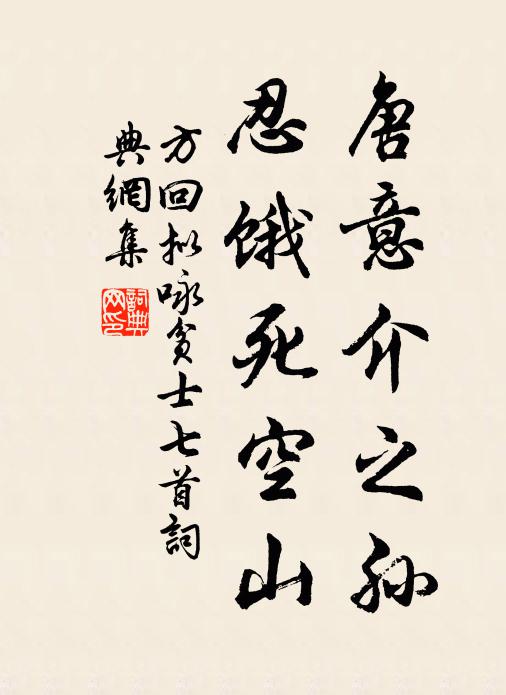 唐意介之孙
忍饿死空山
方回拟咏贫士七首詞
典網集
詞典网印